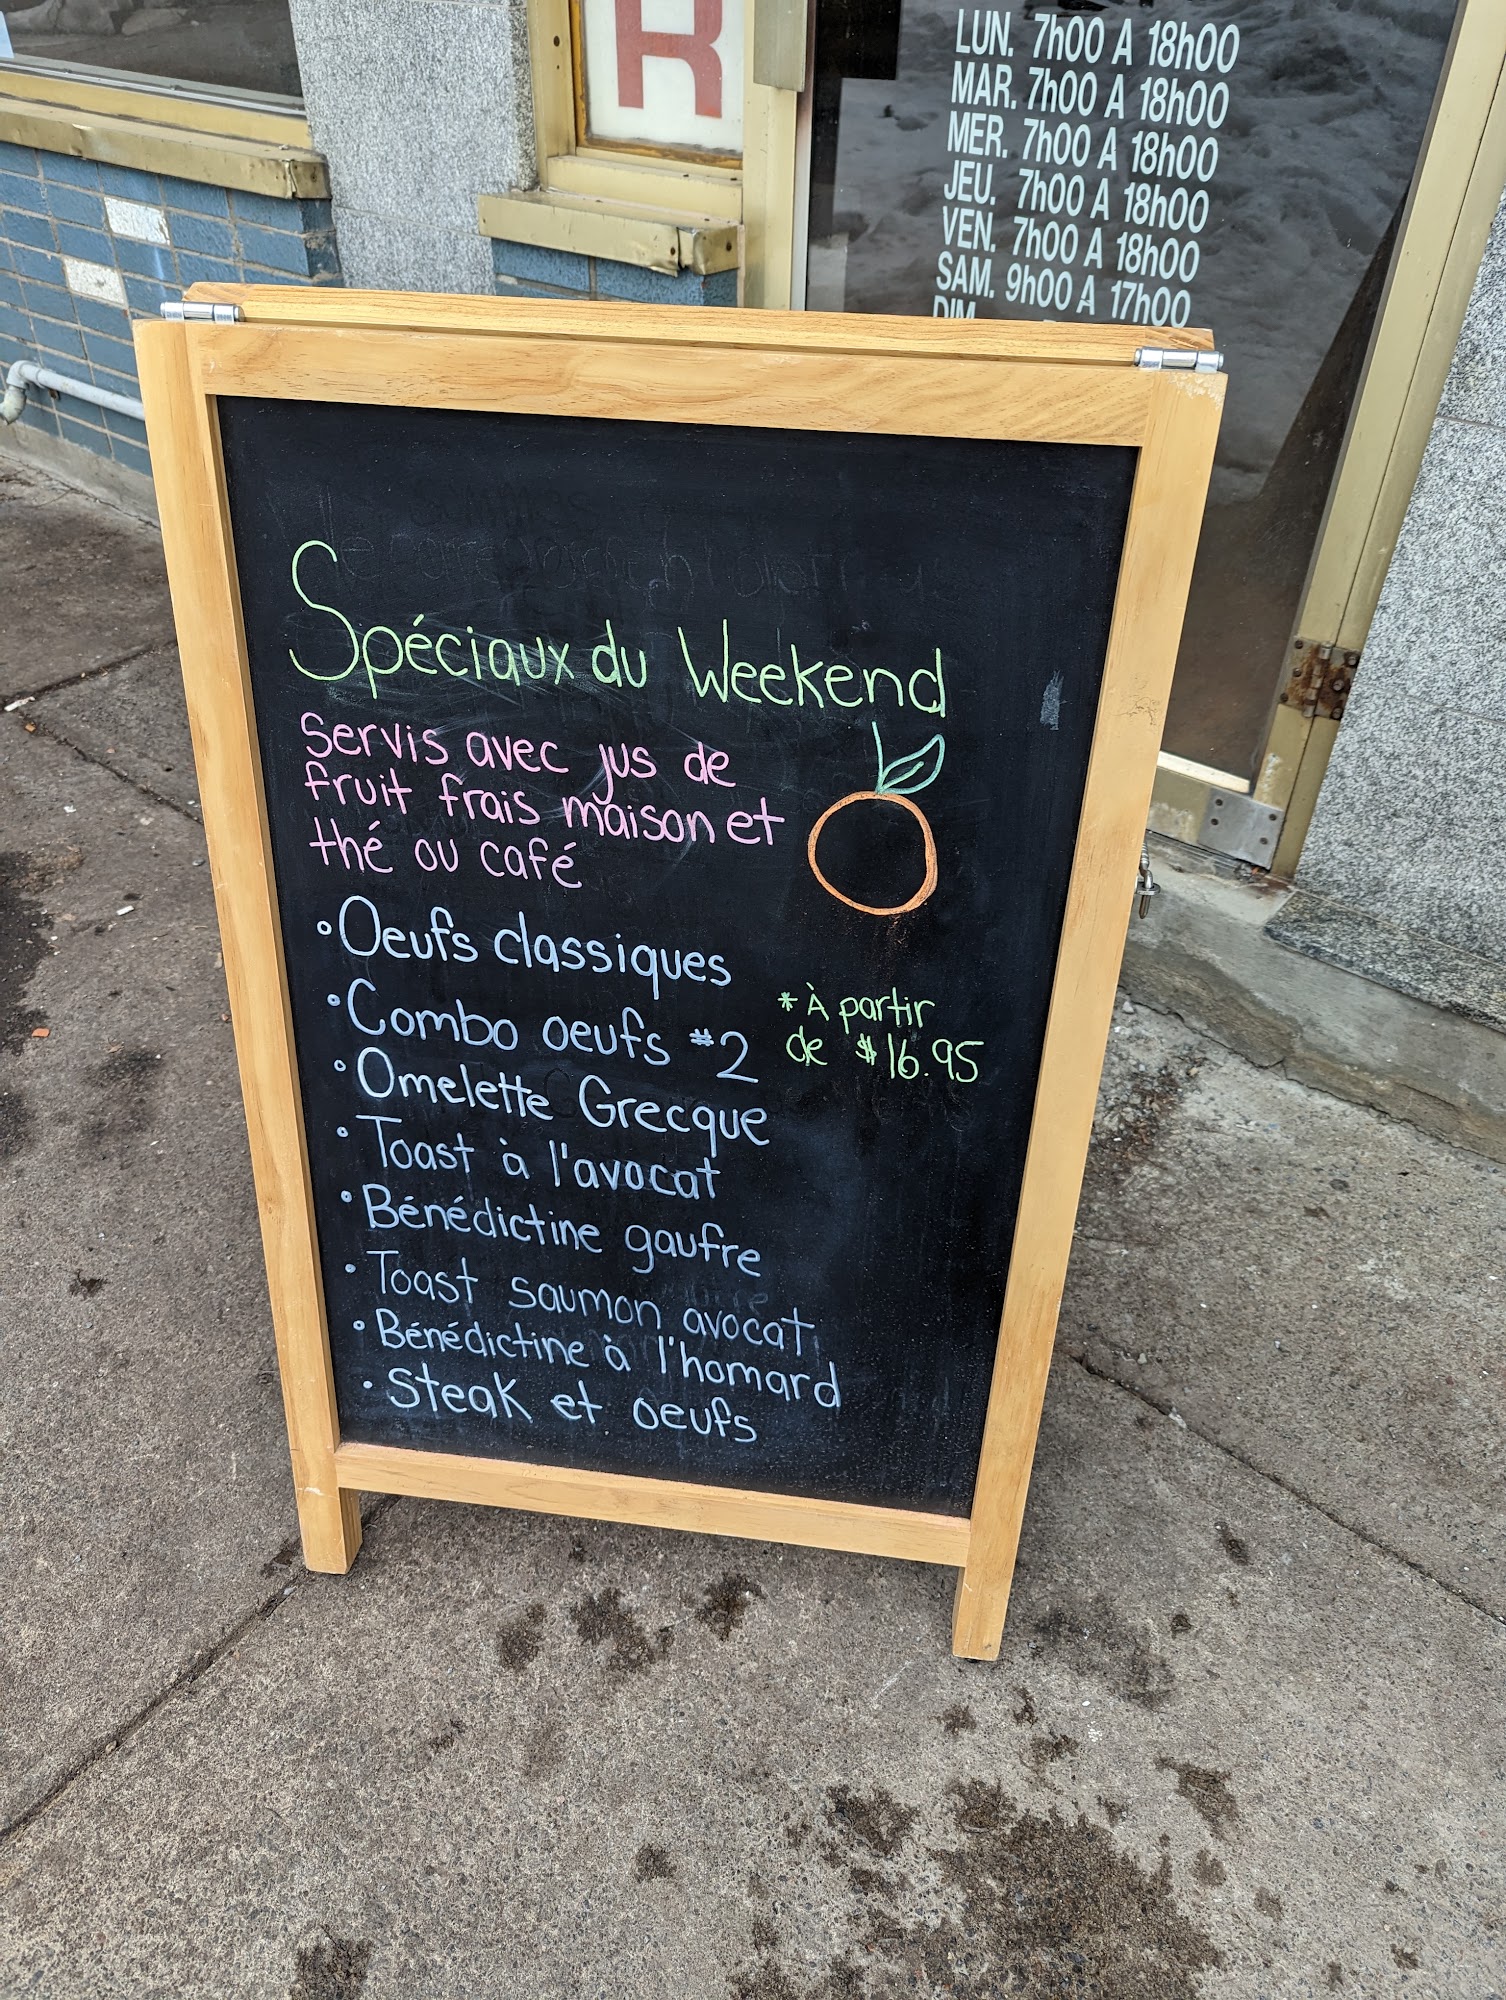 R
LUN. 7h00 A 18h00
MAR. 7h00 A 18h00
MER. 7h00 A 18h00
JEU. 7h00 A 18h00
VEN. 7h00 A 18h00
SAM. 9h00 A 17h00
DIM
Spéciaux du Weekend
servis avec jus de
fruit frais maison et
thé ou café
• Oeufs classiques
• Combo oeufs #2
* À partir
de $16.95
• Omelette Grecque
• Toast à l'avocat
• Bénédictine gaufre
• Toast saumon avocat
• Bénédictine à l'homard
• Steak et oeufs